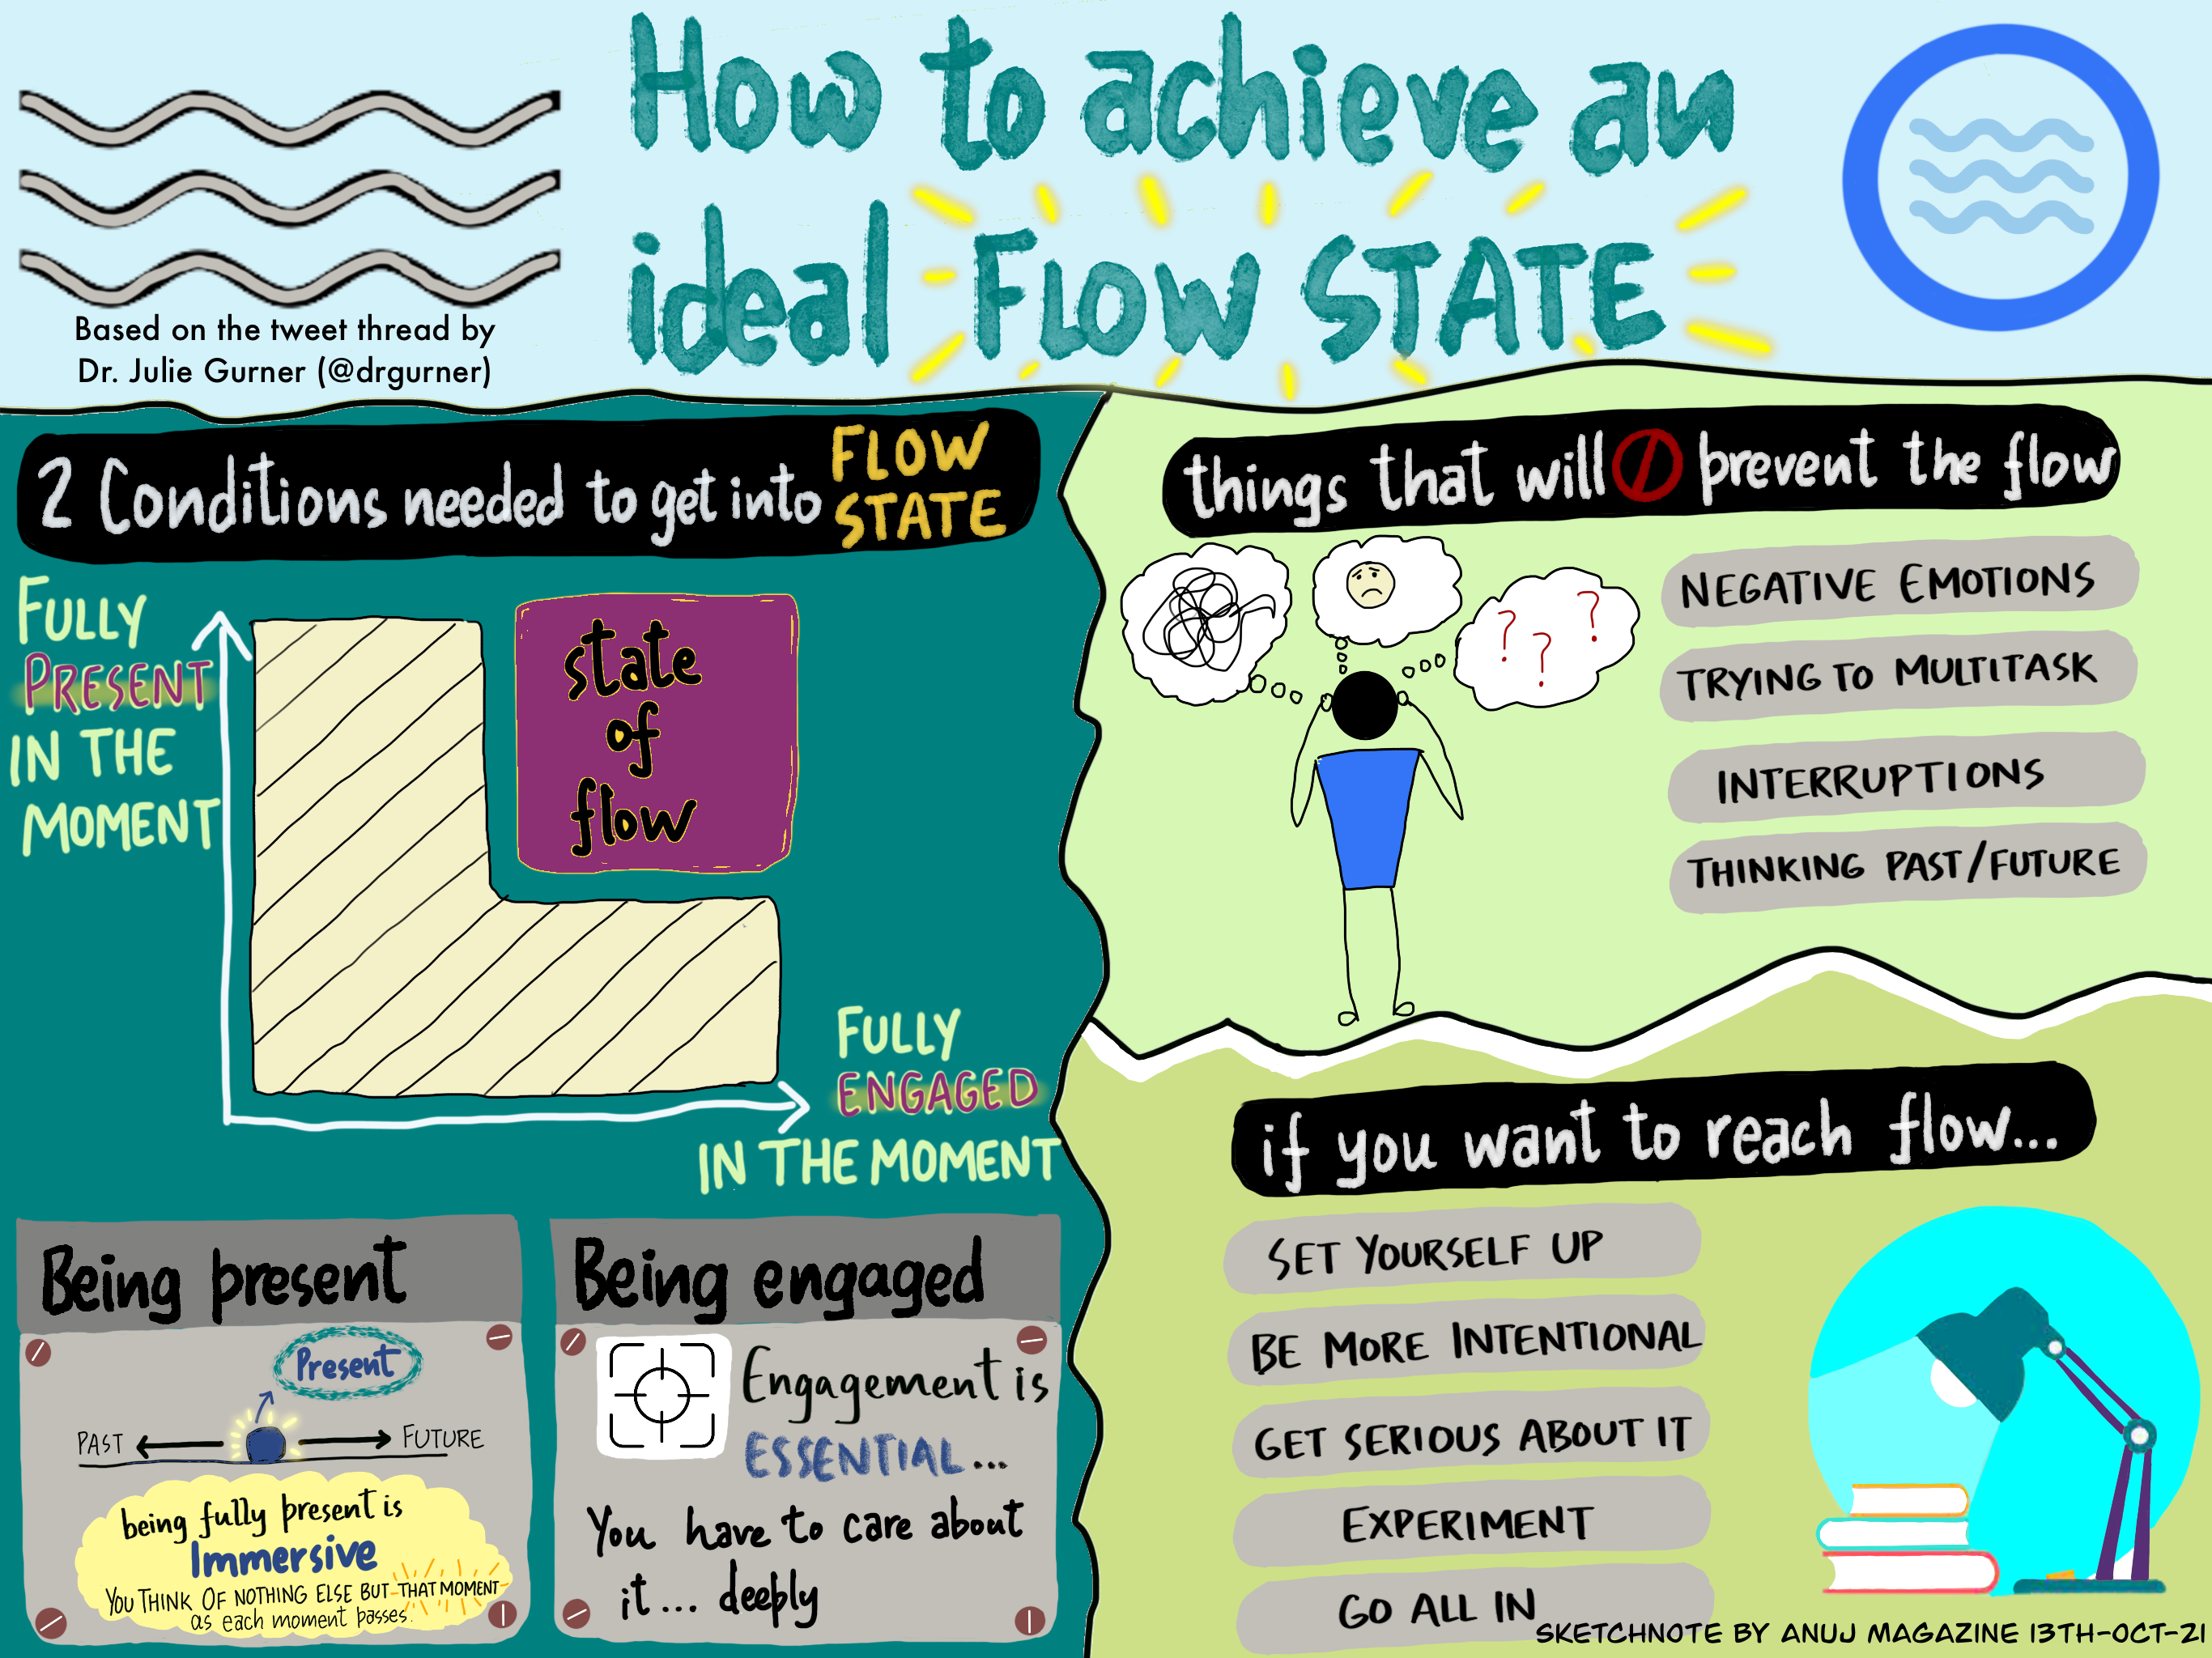 How to achieve an
ideal FLOW STATE
Based on the tweet thread by
Dr. Julie Gurner (@drgurner)
2 Conditions needed to get into FLOW
STATE
FULLY
PRESENT
IN THE
MOMENT
state
of
flow
FULLY
ENGAGED
IN THE MOMENT
Being present
Present
PAST
FUTURE
being fully present is
Immersive
YOU THINK OF NOTHING ELSE BUT THAT MOMENT
as each moment passes.
Being engaged
Engagement is
ESSENTIAL...
You have to care about
it... deeply
things that will prevent the flow
? ? ?
NEGATIVE EMOTIONS
TRYING TO MULTITASK
INTERRUPTIONS
THINKING PAST/FUTURE
if you want to reach flow...
SET YOURSELF UP
BE MORE INTENTIONAL
GET SERIOUS ABOUT IT
EXPERIMENT
GO ALL IN
SKETCHNOTE BY ANUJ MAGAZINE 13TH-OCT-21